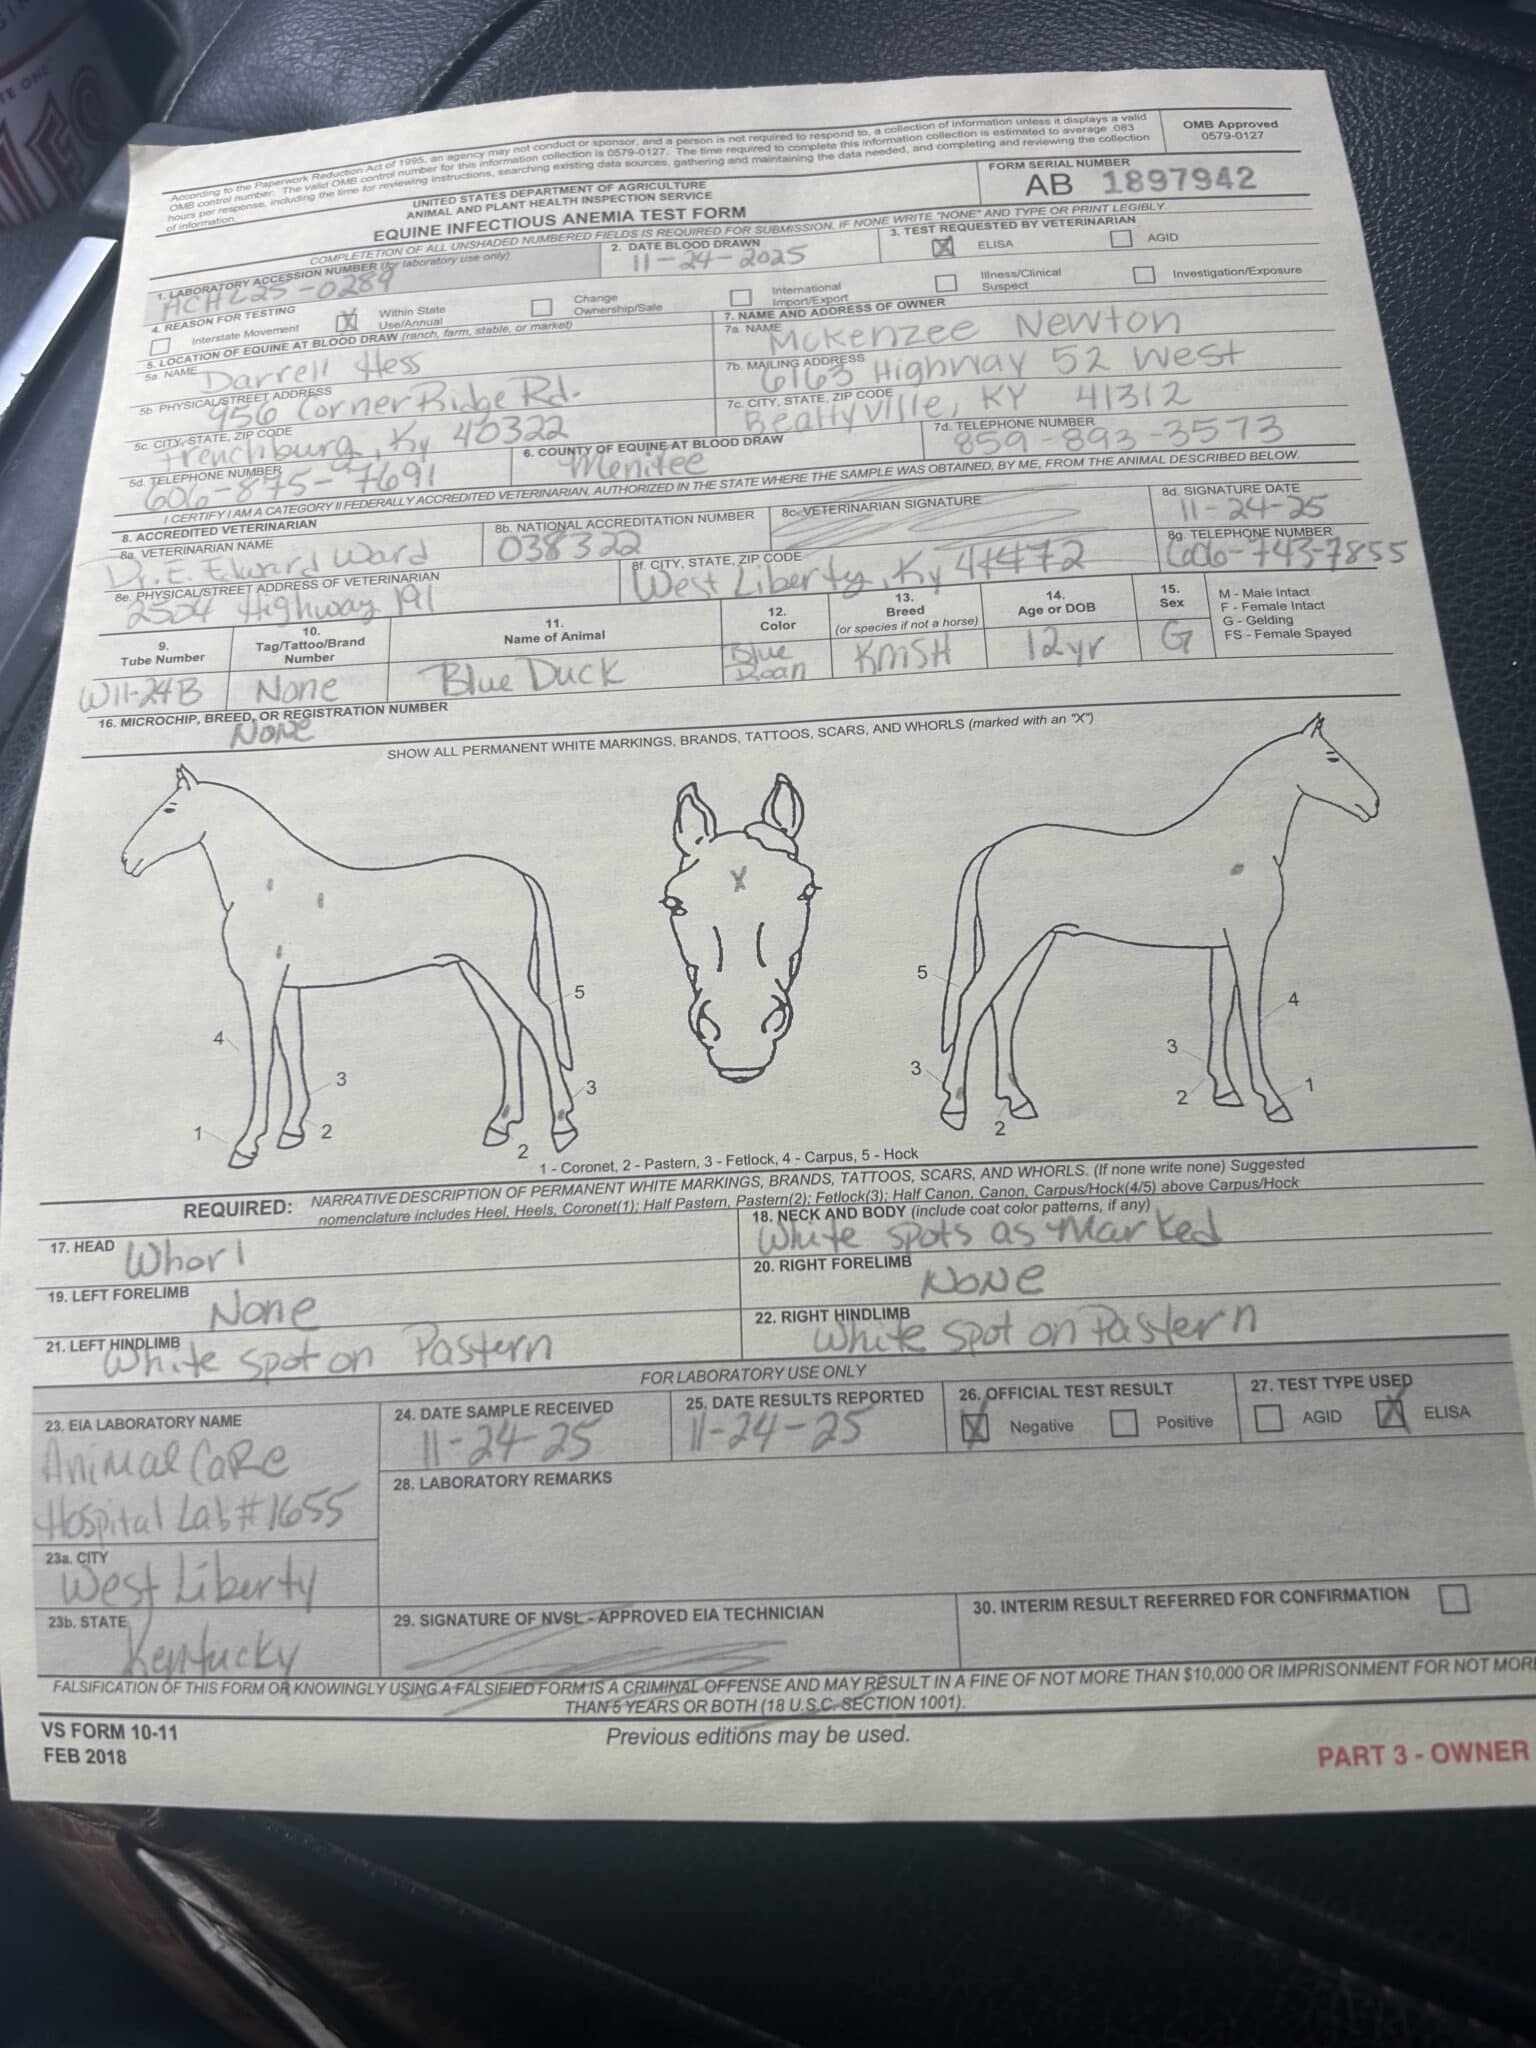 TE ONE
According to the Paperwork Reduction Act of 1995, an agency may not conduct or sponsor, and a person is not required to respond to, a collection of information unless it displays a valid
OMB control number. The valid OMB control number for this information collection is 0579-0127. The time required to complete this information collection is estimated to average .083
hours per response, including the time for reviewing instructions, searching existing data sources, gathering and maintaining the data needed, and completing and reviewing the collection
of information.
OMB Approved
0579-0127
UNITED STATES DEPARTMENT OF AGRICULTURE
ANIMAL AND PLANT HEALTH INSPECTION SERVICE
EQUINE INFECTIOUS ANEMIA TEST FORM
FORM SERIAL NUMBER
AB 1897942
COMPLETETION OF ALL UNSHADED NUMBERED FIELDS IS REQUIRED FOR SUBMISSION, IF NONE WRITE "NONE" AND TYPE OR PRINT LEGIBLY.
1. LABORATORY ACCESSION NUMBER (for laboratory use only)
ACHL25-0289
2. DATE BLOOD DRAWN
11-24-2025
3. TEST REQUESTED BY VETERINARIAN
X ELISA
AGID
4. REASON FOR TESTING
Interstate Movement
X Within State
Use/Annual
Change
Ownership/Sale
International
Import/Export
Illness/Clinical
Suspect
Investigation/Exposure
5. LOCATION OF EQUINE AT BLOOD DRAW (ranch, farm, stable, or market)
5a. NAME
Darrell Hess
5b. PHYSICAL/STREET ADDRESS
956 Corner Ridge Rd.
5c. CITY, STATE, ZIP CODE
Frenchburg, Ky 40322
5d. TELEPHONE NUMBER
606-875-7691
6. COUNTY OF EQUINE AT BLOOD DRAW
Menifee
7. NAME AND ADDRESS OF OWNER
7a. NAME
McKenzee Newton
7b. MAILING ADDRESS
6163 Highway 52 West
7c. CITY, STATE, ZIP CODE
Beattyville, KY 41312
7d. TELEPHONE NUMBER
859-893-3573
I CERTIFY I AM A CATEGORY II FEDERALLY ACCREDITED VETERINARIAN, AUTHORIZED IN THE STATE WHERE THE SAMPLE WAS OBTAINED, BY ME, FROM THE ANIMAL DESCRIBED BELOW.
8. ACCREDITED VETERINARIAN
8a. VETERINARIAN NAME
Dr. E. Edward Ward
8b. NATIONAL ACCREDITATION NUMBER
038322
8c. VETERINARIAN SIGNATURE
8d. SIGNATURE DATE
11-24-25
8e. PHYSICAL/STREET ADDRESS OF VETERINARIAN
2504 Highway 191
8f. CITY, STATE, ZIP CODE
West Liberty, Ky 41472
8g. TELEPHONE NUMBER
606-743-7855
9.
Tube Number
W11-24B
10.
Tag/Tattoo/Brand
Number
None
11.
Name of Animal
Blue Duck
12.
Color
Blue
Roan
13.
Breed
(or species if not a horse)
KMSH
14.
Age or DOB
12yr
15.
Sex
G
M - Male Intact
F - Female Intact
G - Gelding
FS - Female Spayed
16. MICROCHIP, BREED, OR REGISTRATION NUMBER
None
SHOW ALL PERMANENT WHITE MARKINGS, BRANDS, TATTOOS, SCARS, AND WHORLS (marked with an "X")
X
5
4
3
3
1
2
2
5
4
3
3
2
1
2
1 - Coronet, 2 - Pastern, 3 - Fetlock, 4 - Carpus, 5 - Hock
REQUIRED: NARRATIVE DESCRIPTION OF PERMANENT WHITE MARKINGS, BRANDS, TATTOOS, SCARS, AND WHORLS. (If none write none) Suggested
nomenclature includes Heel, Heels, Coronet(1); Half Pastern, Pastern(2); Fetlock(3); Half Canon, Canon, Carpus/Hock(4/5) above Carpus/Hock
17. HEAD
Whorl
18. NECK AND BODY (include coat color patterns, if any)
White spots as Marked
19. LEFT FORELIMB
None
20. RIGHT FORELIMB
None
21. LEFT HINDLIMB
White spot on Pastern
22. RIGHT HINDLIMB
White spot on Pastern
FOR LABORATORY USE ONLY
23. EIA LABORATORY NAME
Animal Care
Hospital Lab #1655
23a. CITY
West Liberty
23b. STATE
Kentucky
24. DATE SAMPLE RECEIVED
11-24-25
25. DATE RESULTS REPORTED
11-24-25
26. OFFICIAL TEST RESULT
X Negative
Positive
27. TEST TYPE USED
AGID
X ELISA
28. LABORATORY REMARKS
29. SIGNATURE OF NVSL - APPROVED EIA TECHNICIAN
30. INTERIM RESULT REFERRED FOR CONFIRMATION
FALSIFICATION OF THIS FORM OR KNOWINGLY USING A FALSIFIED FORM IS A CRIMINAL OFFENSE AND MAY RESULT IN A FINE OF NOT MORE THAN $10,000 OR IMPRISONMENT FOR NOT MORE
THAN 5 YEARS OR BOTH (18 U.S.C. SECTION 1001).
VS FORM 10-11
FEB 2018
Previous editions may be used.
PART 3 - OWNER